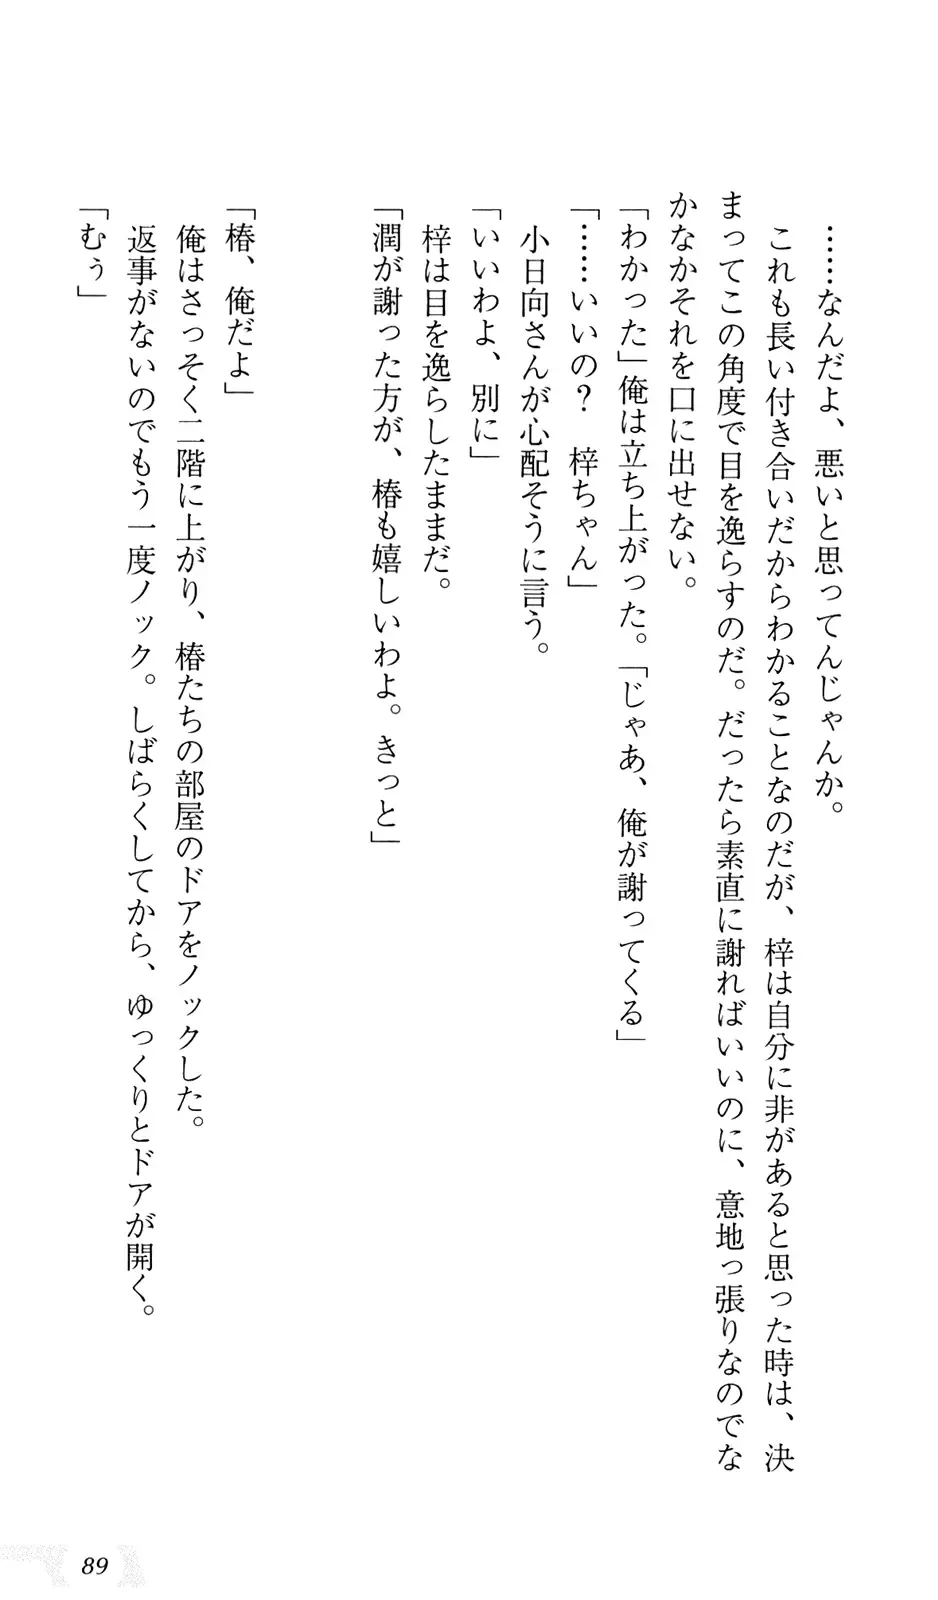 ……なんだよ、悪いと思ってんじゃんか。
これも長い付き合いだからわかることなのだが、梓は自分に非があると思った時は、決
まってこの角度で目を逸らすのだ。だったら素直に謝ればいいのに、意地っ張りなのでな
かなかそれを口に出せない。
「わかった」俺は立ち上がった。「じゃあ、俺が謝ってくる」
「……いいの？　梓ちゃん」
小日向さんが心配そうに言う。
「いいわよ、別に」
梓は目を逸らしたままだ。
「潤が謝った方が、椿も嬉しいわよ。きっと」
「椿、俺だよ」
俺はさっそく二階に上がり、椿たちの部屋のドアをノックした。
返事がないのでもう一度ノック。しばらくしてから、ゆっくりとドアが開く。
「むぅ」
89